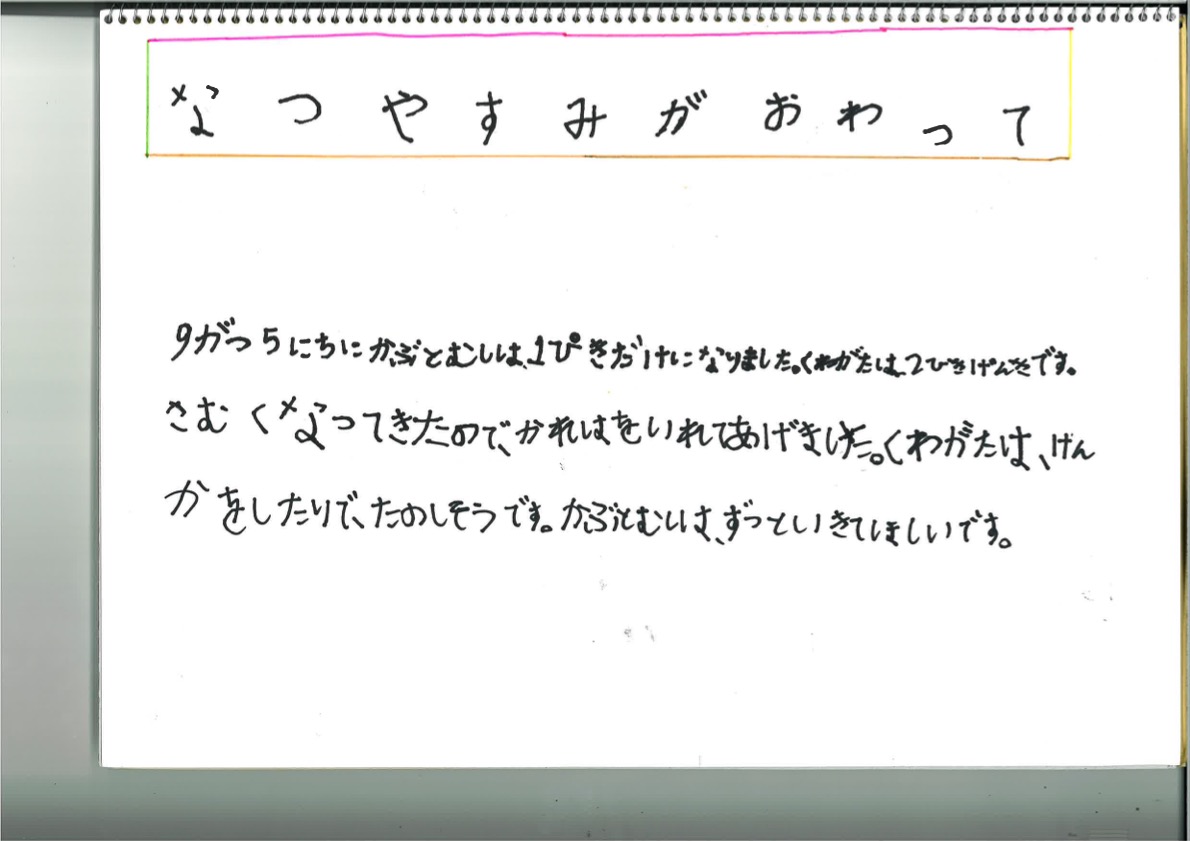 なつやすみがおわって
9がつ5にちにかぶとむしは、1ぴきだけになりました。くわがたは、2ひきげんきです。
さむくなってきたので、かれはをいれてあげました。くわがたは、げん
かをしたりで、たのしそうです。かぶとむしは、ずっといきてほしいです。